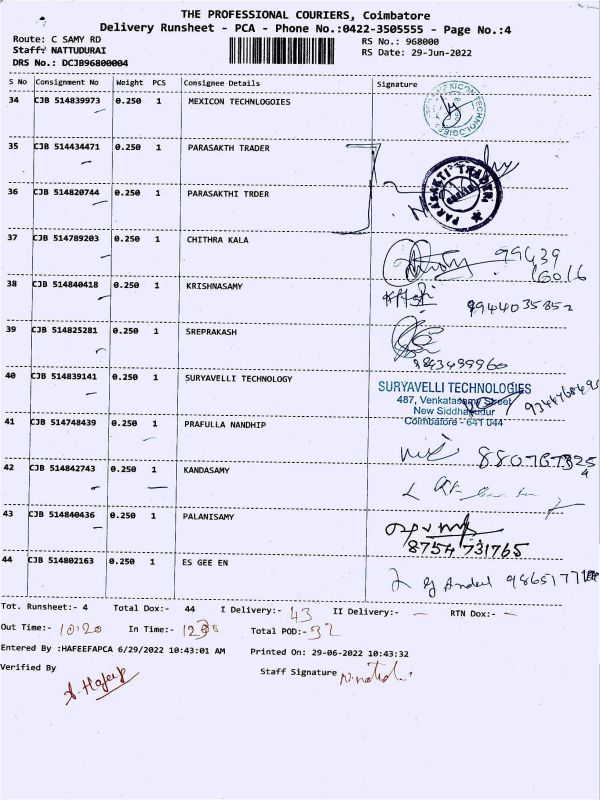 THE PROFESSIONAL COURIERS, Coimbatore
Delivery Runsheet - PCA - Phone No.:0422-3505555 - Page No.:4
Route: C SAMY RD
Staff: NATTUDURAI
DRS No.: DCJB96800004
RS No.: 968000
RS Date: 29-Jun-2022
S No Consignment No Weight PCS Consignee Details Signature
34 CJB 514839973 0.250 1 MEXICON TECHNLOGOIES
MEXICON TECHNOLOGIES
35 CJB 514434471 0.250 1 PARASAKTH TRADER
PARASAKTI TRADER
36 CJB 514820744 0.250 1 PARASAKTHI TRDER
37 CJB 514789203 0.250 1 CHITHRA KALA
99439
16016
38 CJB 514840418 0.250 1 KRISHNASAMY
9944035852
39 CJB 514825281 0.250 1 SREPRAKASH
9843499960
40 CJB 514839141 0.250 1 SURYAVELLI TECHNOLOGY
SURYAVELLI TECHNOLOGIES
487, Venkatasamy Street
New Siddhapudur
Coimbatore - 641 044
41 CJB 514748439 0.250 1 PRAFULLA NANDHIP
42 CJB 514842743 0.250 1 KANDASAMY
43 CJB 514840436 0.250 1 PALANISAMY
8754 731765
44 CJB 514802163 0.250 1 ES GEE EN
Tot. Runsheet:- 4 Total Dox:- 44 I Delivery:- 43 II Delivery:- - RTN Dox:- -
Out Time:- 10:20 In Time:- Total POD:- 32
Entered By :HAFEEFAPCA 6/29/2022 10:43:01 AM Printed On: 29-06-2022 10:43:32
Verified By Staff Signature